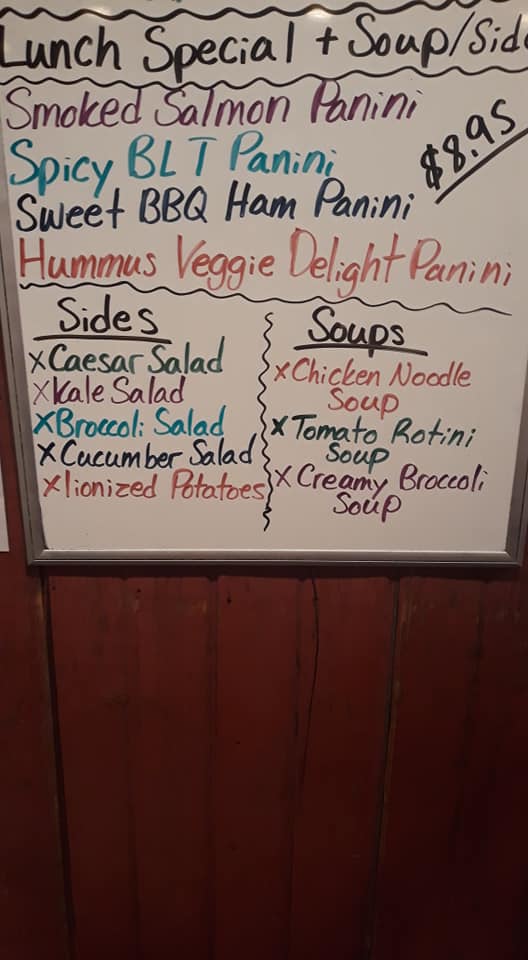 Lunch Special + Soup/Side
Smoked Salmon Panini
$8.95
Spicy BLT Panini
Sweet BBQ Ham Panini
Hummus Veggie Delight Panini
Sides
x Caesar Salad
x Kale Salad
x Broccoli Salad
x Cucumber Salad
x lionized Potatoes
Soups
x Chicken Noodle
Soup
x Tomato Rotini
Soup
x Creamy Broccoli
Soup